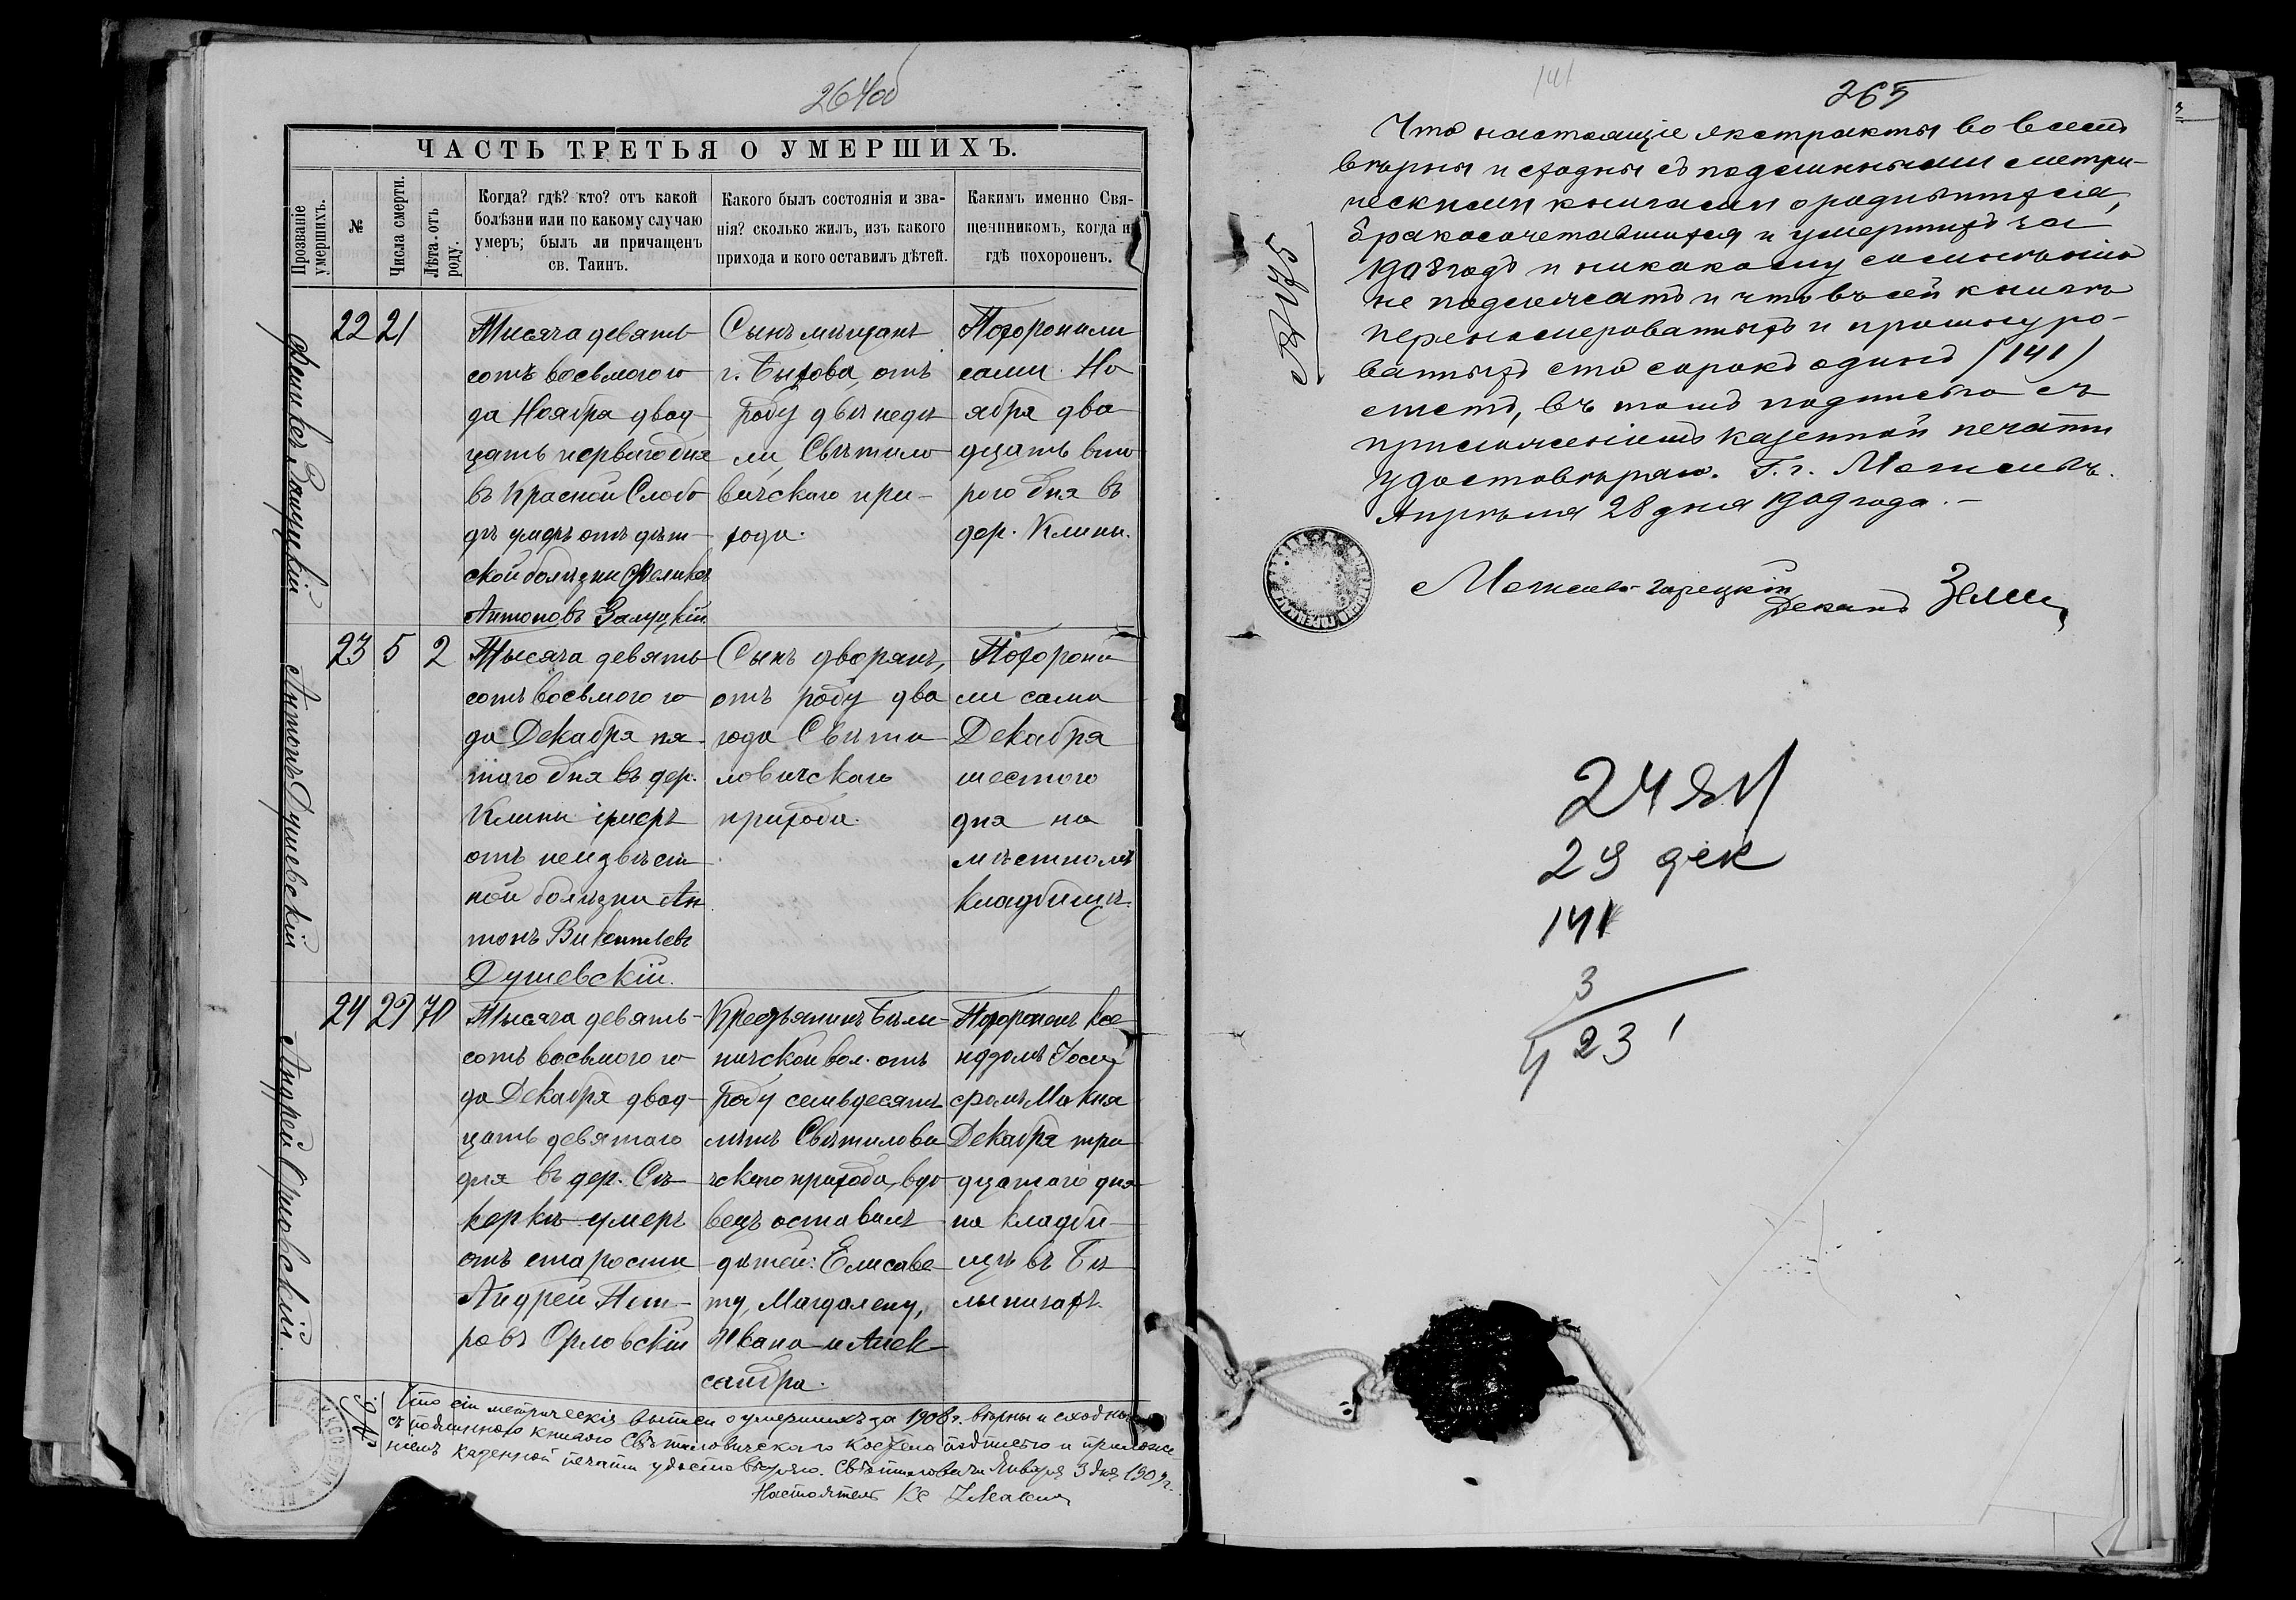 264об
ЧАСТЬ ТРЕТЬЯ О УМЕРШИХЪ.
Прозваніе умершихъ.
№
Числа смерти.
Лѣта отъ роду.
Когда? гдѣ? кто? отъ какой
болѣзни или по какому случаю
умеръ; былъ ли причащенъ
св. Таинъ.
Какого былъ состоянія и зва-
нія? сколько жилъ, изъ какого
прихода и кого оставилъ дѣтей.
Какимъ именно Свя-
щенникомъ, когда и
гдѣ похороненъ.
Феликсъ Залуцкій
22
21
Тысяча девять
сотъ восьмого го
да Ноября двад
цать перваго дня
въ Красной Слобо
дѣ умеръ отъ дѣт-
ской болѣзни Феликсъ
Антоновъ Залуцкій
Сынъ мѣщанъ
г. Быхова, отъ
роду двѣ недѣ
ли, Свѣтило
вичскаго при-
хода.
Похоронили
сами. Но
ября два
дцать вто
рого дня въ
дер. Клины.
Антонъ Душевскій
23
5
2
Тысяча девять
сотъ восьмого го
да Декабря пя-
таго дня въ дер.
Клины умеръ
отъ неизвѣст
ной болѣзни Ан
тонъ Викентіевъ
Душевскій.
Сынъ дворянъ,
отъ роду два
года Свѣти
ловичскаго
прихода.
Похорони
ли сами
Декабря
шестого
дня на
мѣстномъ
кладбищѣ.
Андрей Орловскій.
24
29
70
Тысяча девять-
сотъ восьмого го
да Декабря двад-
цать девятаго
дня въ дер. Сѣ-
керкѣ умеръ
отъ старости
Андрей Пет-
ровъ Орловскій
Крестьянинъ Бѣлы-
ничской вол. отъ
роду семьдесятъ
лѣтъ Свѣтилови
чскаго прихода, вдо
вецъ оставилъ
дѣтей: Елисаве
ту, Магдалену,
Ивана и Алек-
сандра.
Похороненъ Ксе
ндзомъ Іоси
фомъ Макня
Декабря три
дцатаго дня
на кладби-
щѣ въ Бѣ
лыничахъ.
№ 9.
Что сіи метрическія выписи о умершихъ за 1908 г. вѣрны и сходны
съ подлинною книгою Свѣтиловичскаго костела подписью и приложе
ніемъ казенной печати удостовѣряю. Свѣтиловичи Января 3 дня 1909 г.
Настоятель Кс
141
265
№ 175
Что настоящіе экстракты во всемъ
вѣрны и сходны съ подлинными метри-
ческими книгами о родившихся,
бракосочетавшихся и умершихъ за
1908 годъ и никакому сомнѣнію
не подлежатъ и что въ сей книгѣ
перенумерованныхъ и прошнуро-
ванныхъ сто сорокъ одинъ (141)
листъ, въ томъ подписью съ
приложеніемъ казенной печати
удостовѣряю. Г. г. Могилевъ.
Апрѣля 28 дня 1909 года.-
Могилево-Горецкій
Деканъ
24 я
29 дек
141
3
23